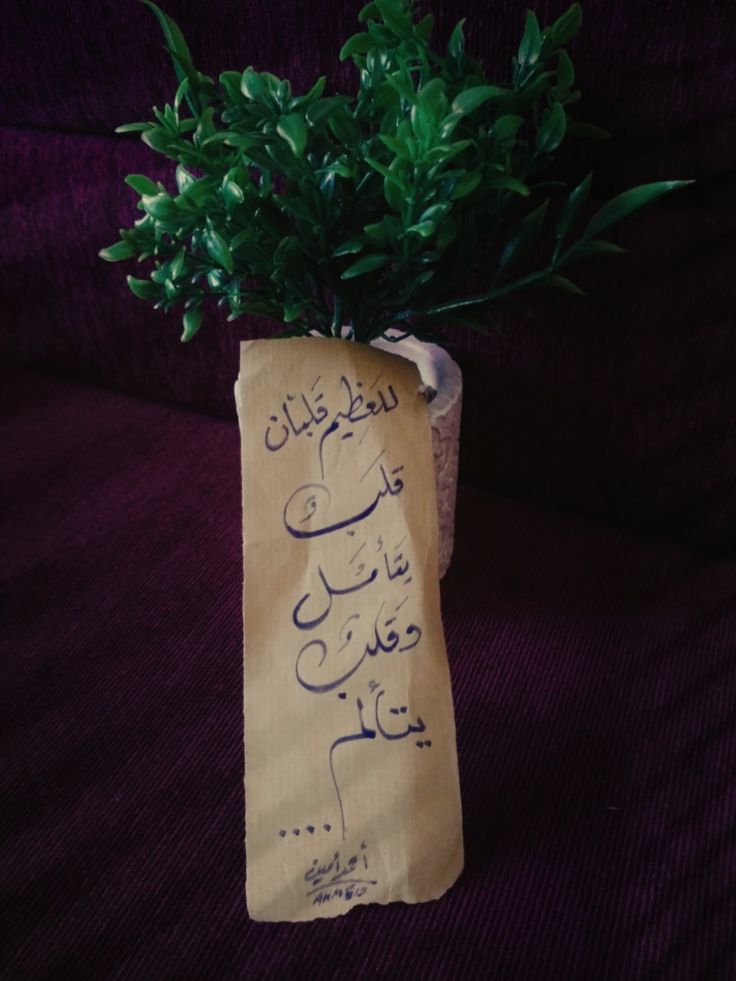 للعَظِيم قَلبَان
قلَبٌ
يَتَأمَل
وَقَلبٌ
يتألم
....
أحمد أمين
AHMED